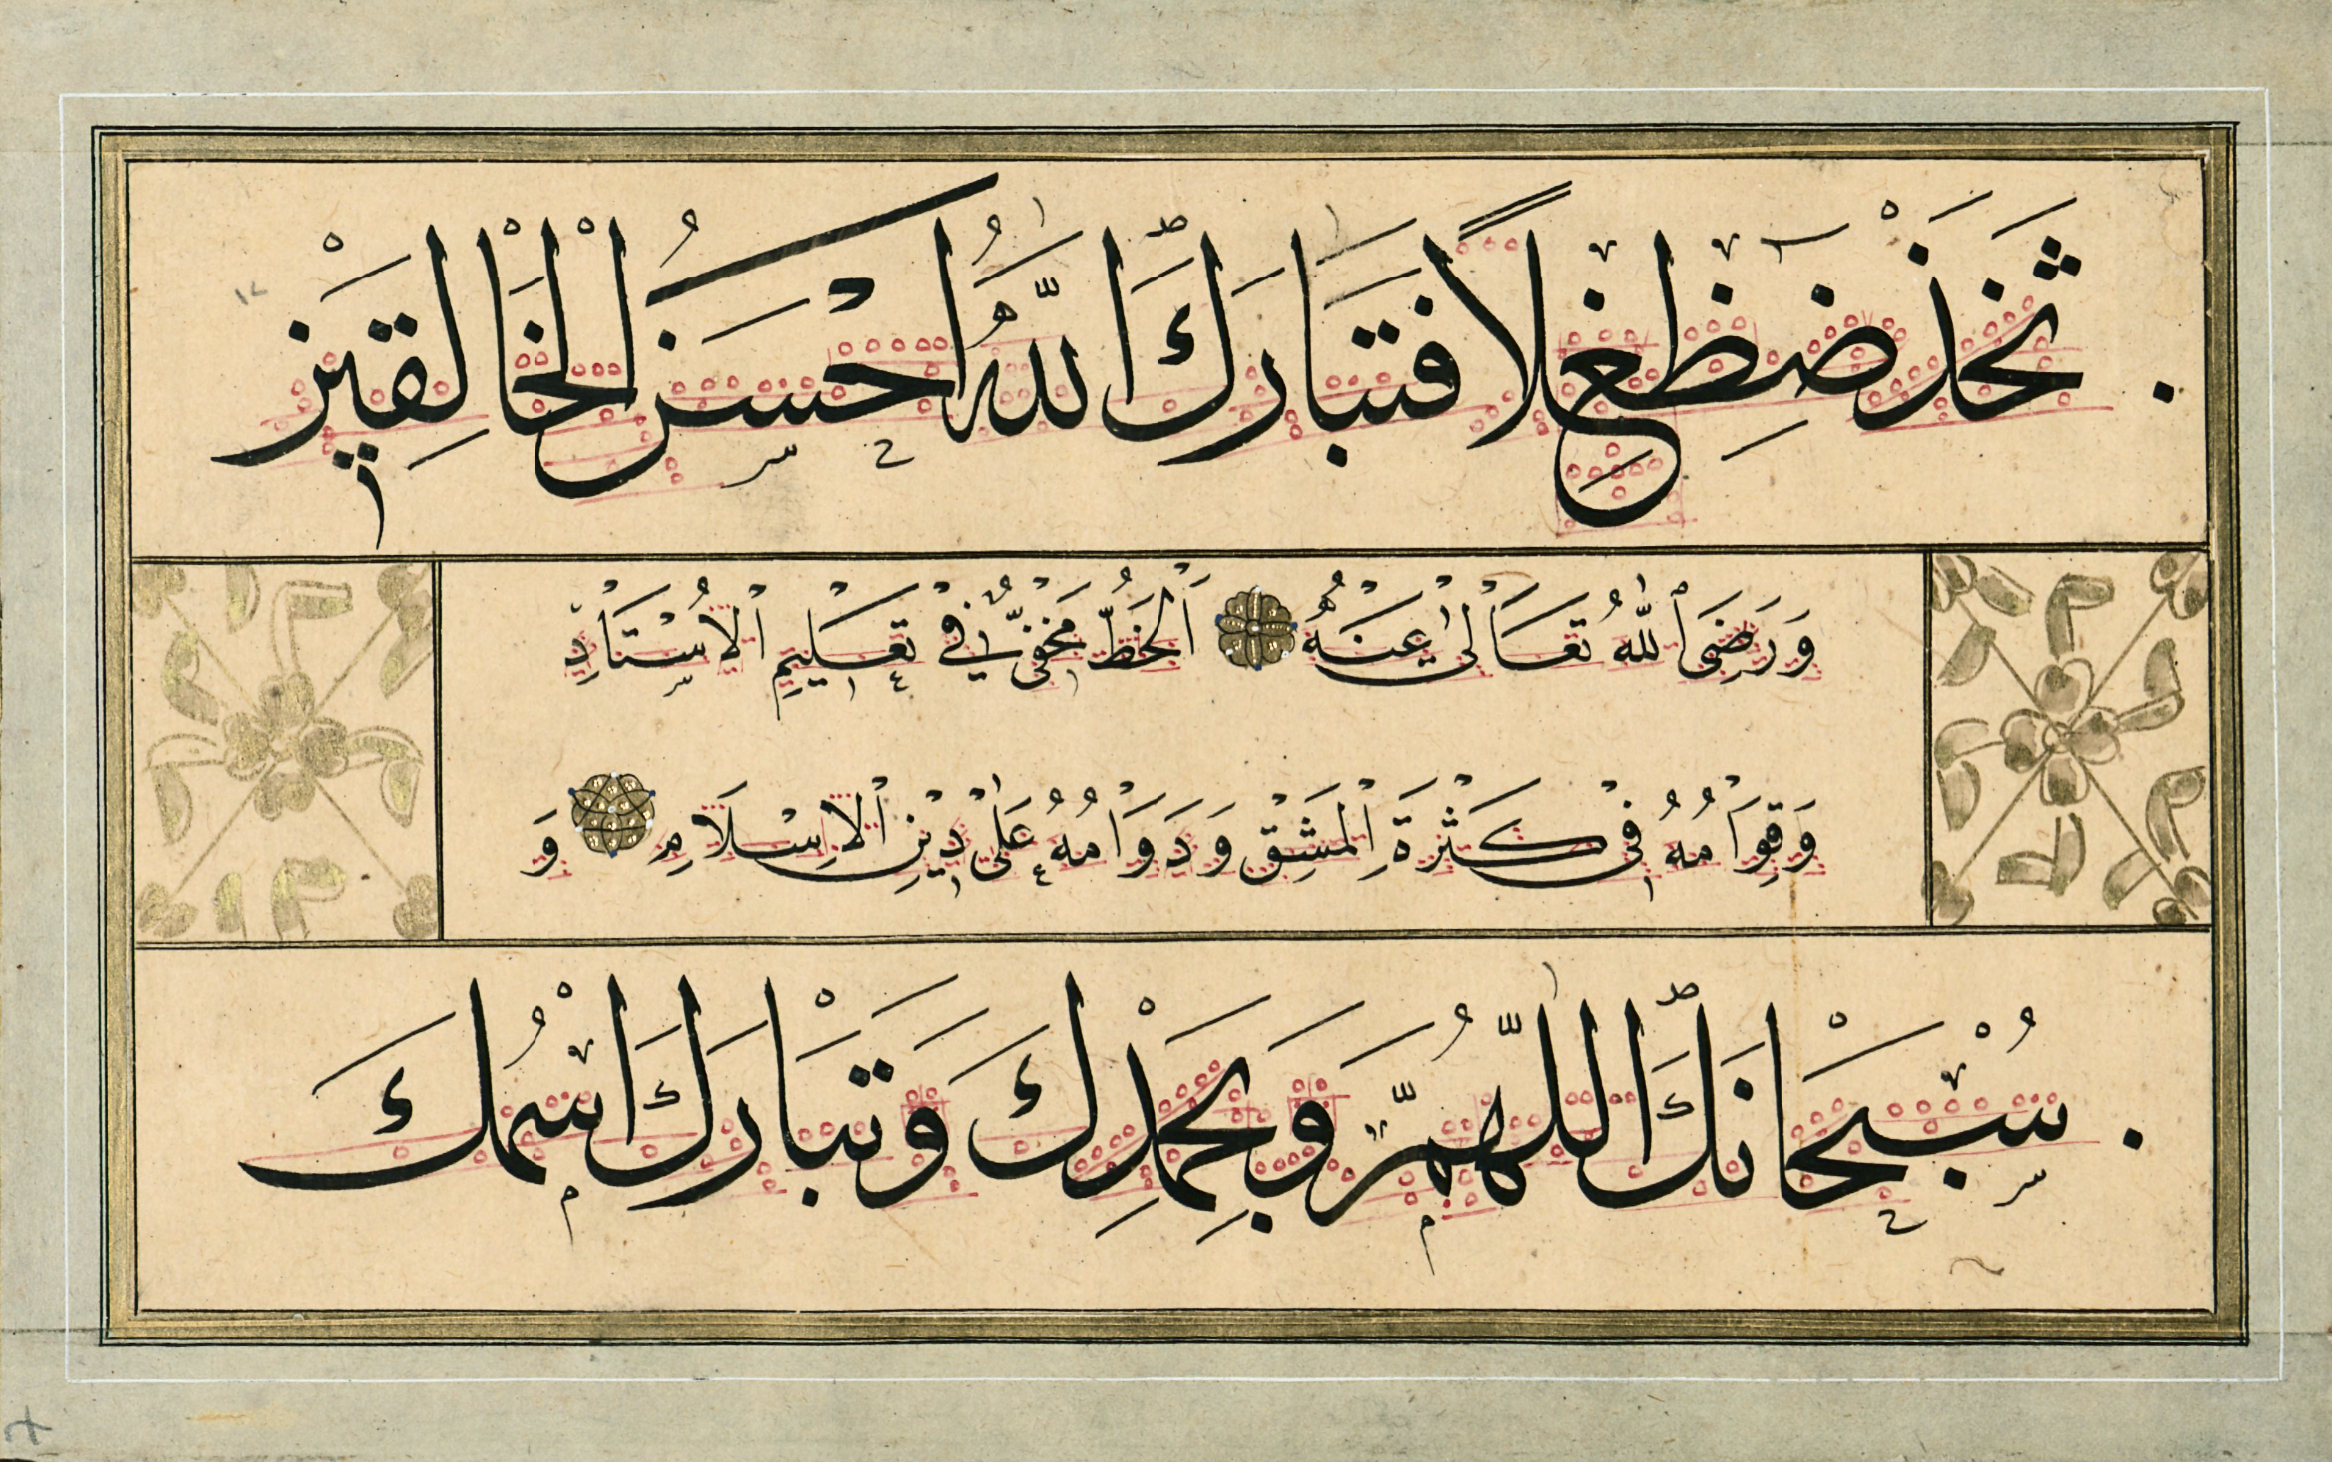 ثَخَذْ ضَظِغٍ لاً فَتَبَارَكَ اللّٰهُ اَحْسَنُ الْخَالِقِيْنَ
وَرَضِيَ اللّٰهُ تَعَالٰى عَنْهُ اَلْخَطُّ مَخْفِيٌّ فِيْ تَعْلِيْمِ الْاُسْتَاذِ
وَقِوَامُهُ فِيْ كَثْرَةِ الْمَشْقِ وَدَوَامُهُ عَلٰى دِيْنِ الْاِسْلَامِ وَ
سُبْحَانَكَ اللّٰهُمَّ وَبِحَمْدِكَ وَتَبَارَكَ اسْمُكَ